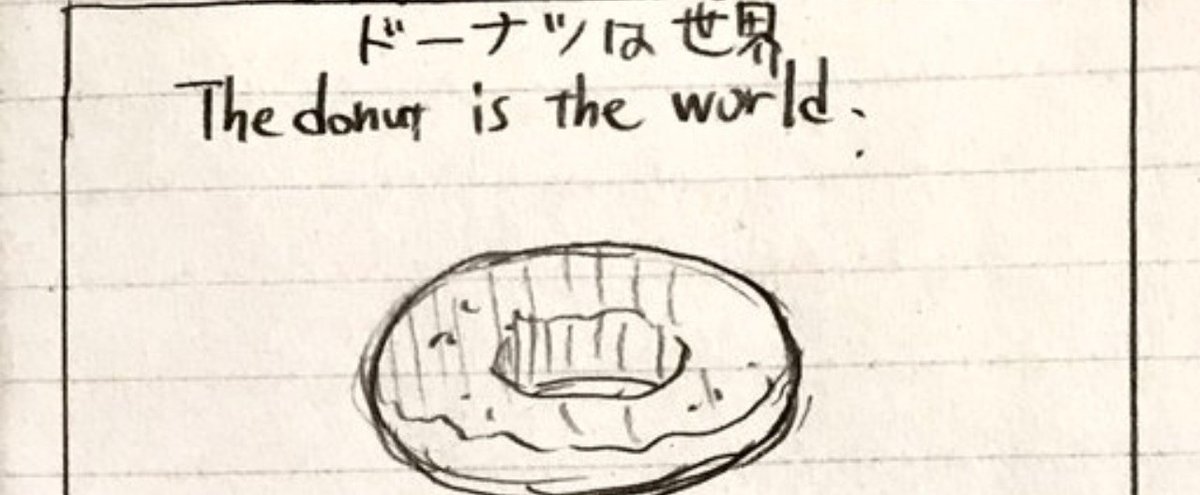 ドーナツは世界
The donut is the world.